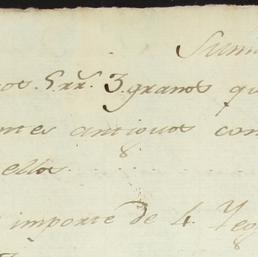 Suma
os. 5. rr.s 3. granos qu
ntes antiguos con
ellos
8
importe de 4. Yeg
8